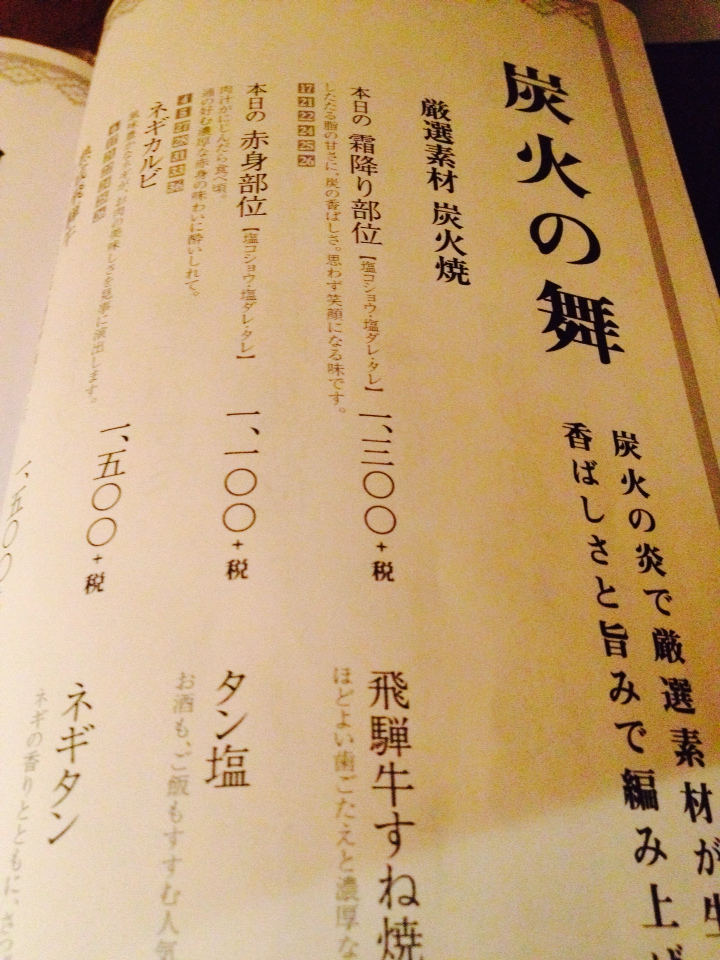 炭火の舞
炭火の炎で厳選素材が生
香ばしさと旨みで編み上げ
厳選素材 炭火焼
本日の 霜降り部位【塩コショウ・塩ダレ・タレ】 一、三〇〇+税
したたる脂の甘さに、炭の香ばしさ。思わず笑顔になる味です。
17 21 22 24 25 26
本日の 赤身部位【塩コショウ・塩ダレ・タレ】 一、一〇〇+税
肉汁がにじんだら食べ頃。
通の好む濃厚な赤身の味わいに酔いしれて。
ネギカルビ 一、五〇〇+税
風味豊かなネギが、お肉の美味しさを見事に演出します。
一、五〇〇
飛騨牛すね焼
ほどよい歯ごたえと濃厚な
タン塩
お酒も、ご飯もすすむ人気
ネギタン
ネギの香りとともに、さっ